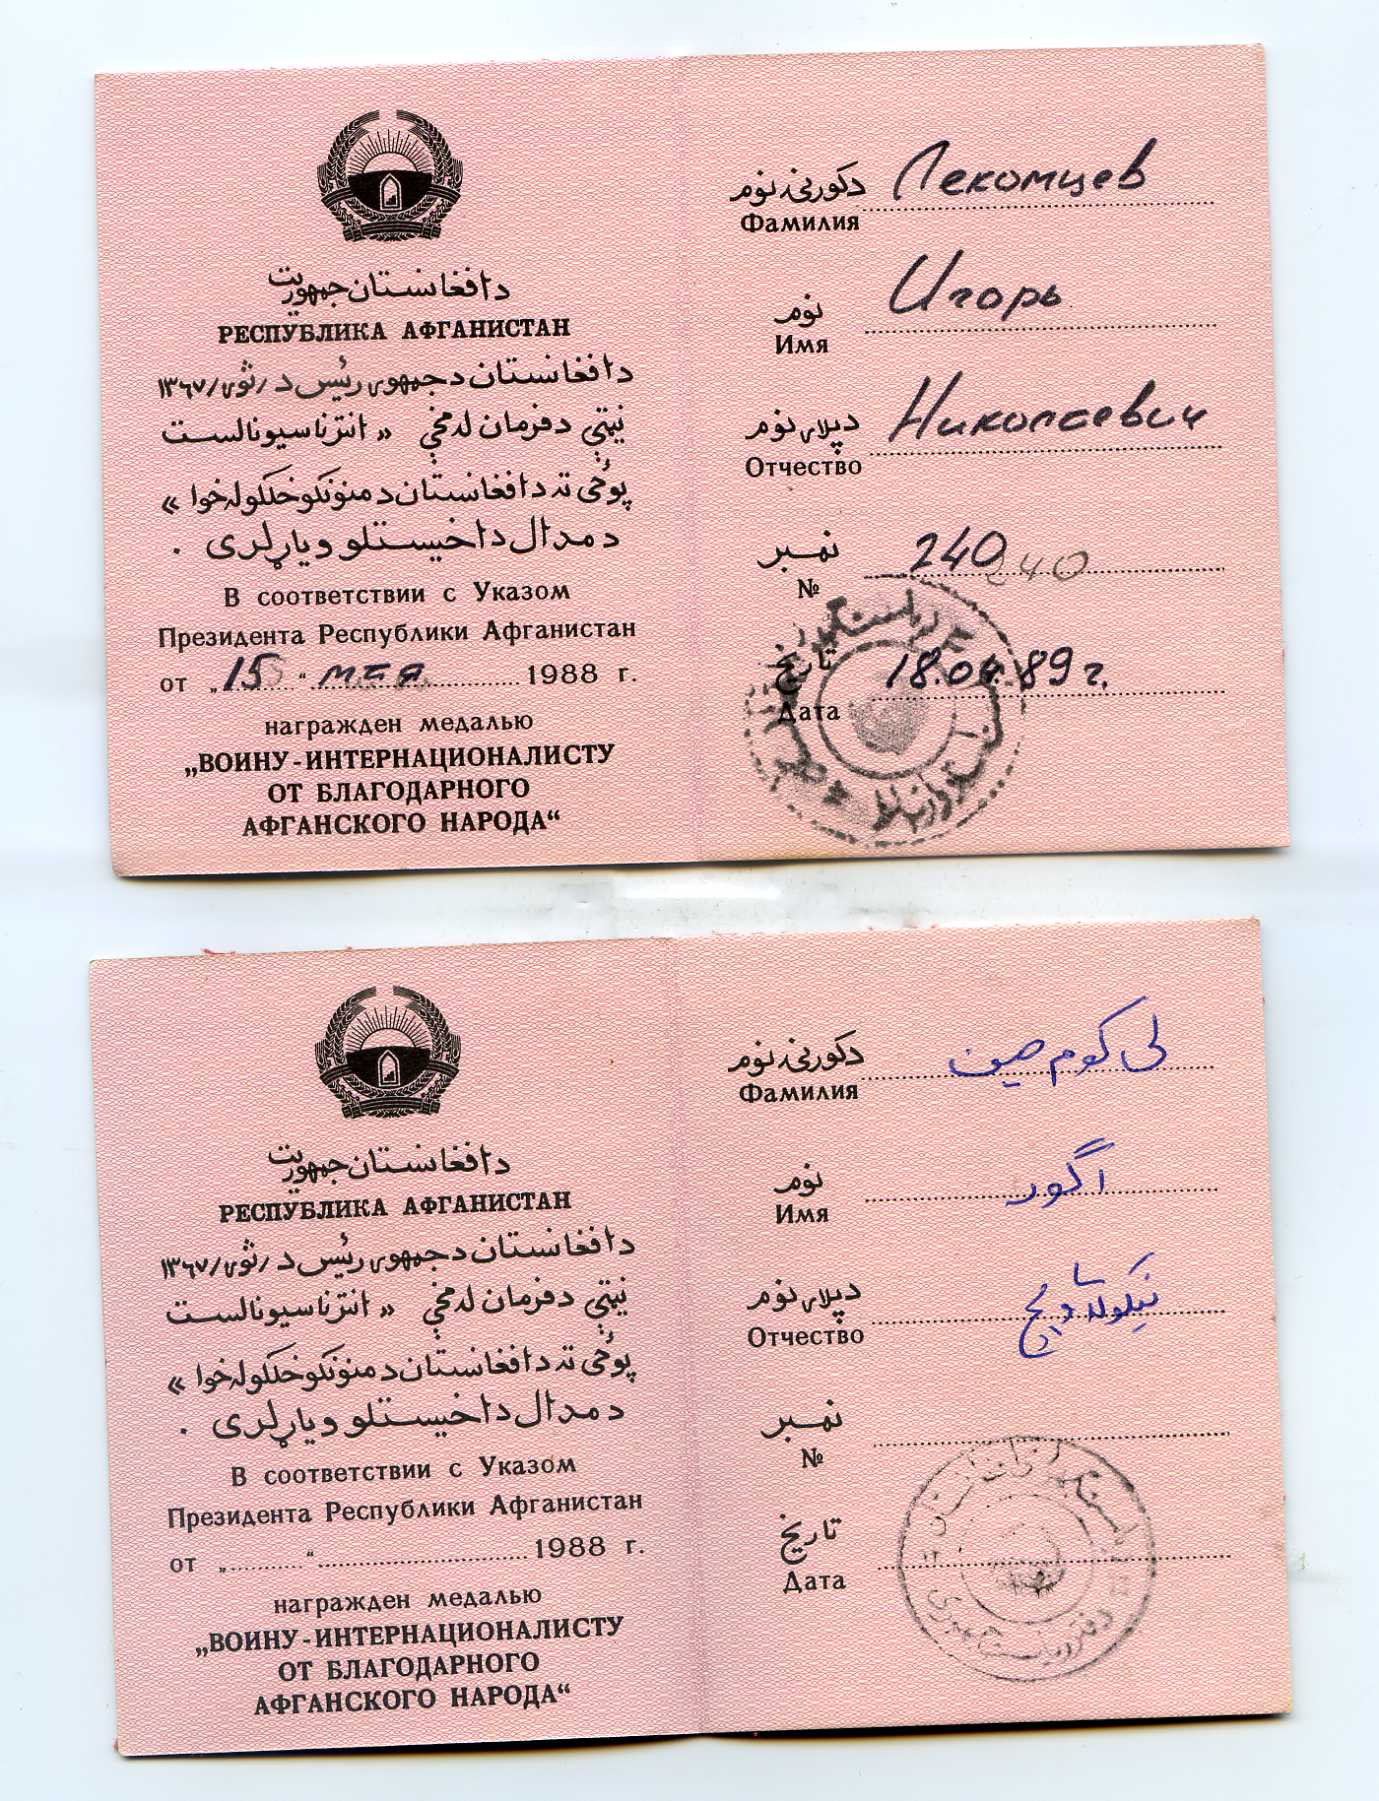 دافغانستان جمهوریت
РЕСПУБЛИКА АФГАНИСТАН
دافغانستان دجمهوری رئیس د /ثور/ ١٣٦٧
نیټې دفرمان له مخې « انترناسیونالست
پوځی ته دافغانستان دمنونکو خلکو له خوا »
دمدال داخیستلو ویاړلری .
В соответствии с Указом
Президента Республики Афганистан
от „15“ мая 1988 г.
награжден медалью
„ВОИНУ-ИНТЕРНАЦИОНАЛИСТУ
ОТ БЛАГОДАРНОГО
АФГАНСКОГО НАРОДА“
دکورنۍ نوم Лекомцев
Фамилия
نوم Игорь
Имя
دپلار نوم Николаевич
Отчество
نمبر 240 240
№
تاریخ 18.04.89 г.
Дата
دافغانستان جمهوریت
РЕСПУБЛИКА АФГАНИСТАН
دافغانستان دجمهوری رئیس د /ثور/ ١٣٦٧
نیټې دفرمان له مخې « انترناسیونالست
پوځی ته دافغانستان دمنونکو خلکو له خوا »
دمدال داخیستلو ویاړلری .
В соответствии с Указом
Президента Республики Афганистан
от „ “ 1988 г.
награжден медалью
„ВОИНУ-ИНТЕРНАЦИОНАЛИСТУ
ОТ БЛАГОДАРНОГО
АФГАНСКОГО НАРОДА“
دکورنۍ نوم لی کوم صیف
Фамилия
نوم اگور
Имя
دپلار نوم
Отчество
نمبر
№
تاریخ
Дата